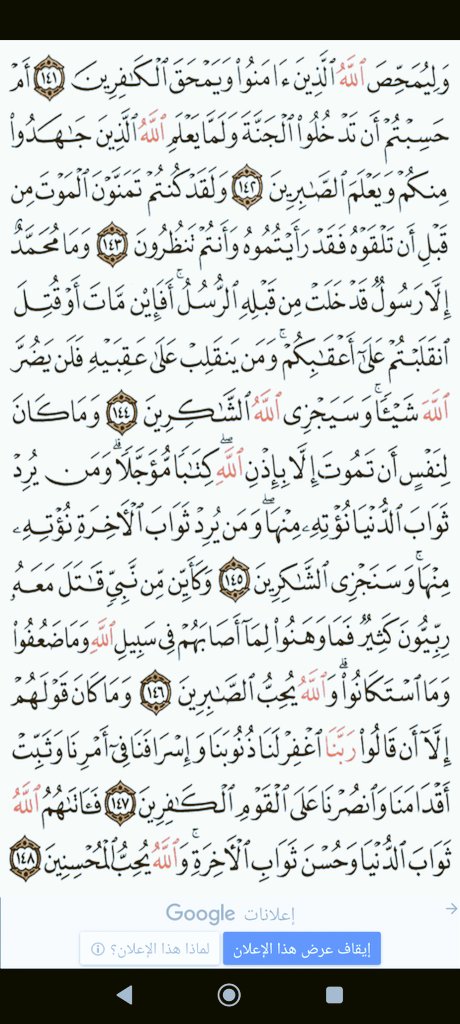 وَلِيُمَحِّصَ ٱللَّهُ ٱلَّذِينَ ءَامَنُوا۟ وَيَمْحَقَ ٱلْكَـٰفِرِينَ ١٤١ أَمْ
حَسِبْتُمْ أَن تَدْخُلُوا۟ ٱلْجَنَّةَ وَلَمَّا يَعْلَمِ ٱللَّهُ ٱلَّذِينَ جَـٰهَدُوا۟
مِنكُمْ وَيَعْلَمَ ٱلصَّـٰبِرِينَ ١٤٢ وَلَقَدْ كُنتُمْ تَمَنَّوْنَ ٱلْمَوْتَ مِن
قَبْلِ أَن تَلْقَوْهُ فَقَدْ رَأَيْتُمُوهُ وَأَنتُمْ تَنظُرُونَ ١٤٣ وَمَا مُحَمَّدٌ
إِلَّا رَسُولٌ قَدْ خَلَتْ مِن قَبْلِهِ ٱلرُّسُلُ ۚ أَفَإِي۟ن مَّاتَ أَوْ قُتِلَ
ٱنقَلَبْتُمْ عَلَىٰٓ أَعْقَـٰبِكُمْ ۚ وَمَن يَنقَلِبْ عَلَىٰ عَقِبَيْهِ فَلَن يَضُرَّ
ٱللَّهَ شَيْـًٔا ۗ وَسَيَجْزِى ٱللَّهُ ٱلشَّـٰكِرِينَ ١٤٤ وَمَا كَانَ
لِنَفْسٍ أَن تَمُوتَ إِلَّا بِإِذْنِ ٱللَّهِ كِتَـٰبًا مُّؤَجَّلًا ۗ وَمَن يُرِدْ
ثَوَابَ ٱلدُّنْيَا نُؤْتِهِۦ مِنْهَا وَمَن يُرِدْ ثَوَابَ ٱلْـَٔاخِرَةِ نُؤْتِهِۦ
مِنْهَا ۚ وَسَنَجْزِى ٱلشَّـٰكِرِينَ ١٤٥ وَكَأَيِّن مِّن نَّبِىٍّ قَـٰتَلَ مَعَهُۥ
رِبِّيُّونَ كَثِيرٌ فَمَا وَهَنُوا۟ لِمَآ أَصَابَهُمْ فِى سَبِيلِ ٱللَّهِ وَمَا ضَعُفُوا۟
وَمَا ٱسْتَكَانُوا۟ ۗ وَٱللَّهُ يُحِبُّ ٱلصَّـٰبِرِينَ ١٤٦ وَمَا كَانَ قَوْلَهُمْ
إِلَّآ أَن قَالُوا۟ رَبَّنَا ٱغْفِرْ لَنَا ذُنُوبَنَا وَإِسْرَافَنَا فِىٓ أَمْرِنَا وَثَبِّتْ
أَقْدَامَنَا وَٱنصُرْنَا عَلَى ٱلْقَوْمِ ٱلْكَـٰفِرِينَ ١٤٧ فَـَٔاتَىٰهُمُ ٱللَّهُ
ثَوَابَ ٱلدُّنْيَا وَحُسْنَ ثَوَابِ ٱلْـَٔاخِرَةِ ۗ وَٱللَّهُ يُحِبُّ ٱلْمُحْسِنِينَ ١٤٨
إعلانات Google
إيقاف عرض هذا الإعلان
لماذا هذا الإعلان؟